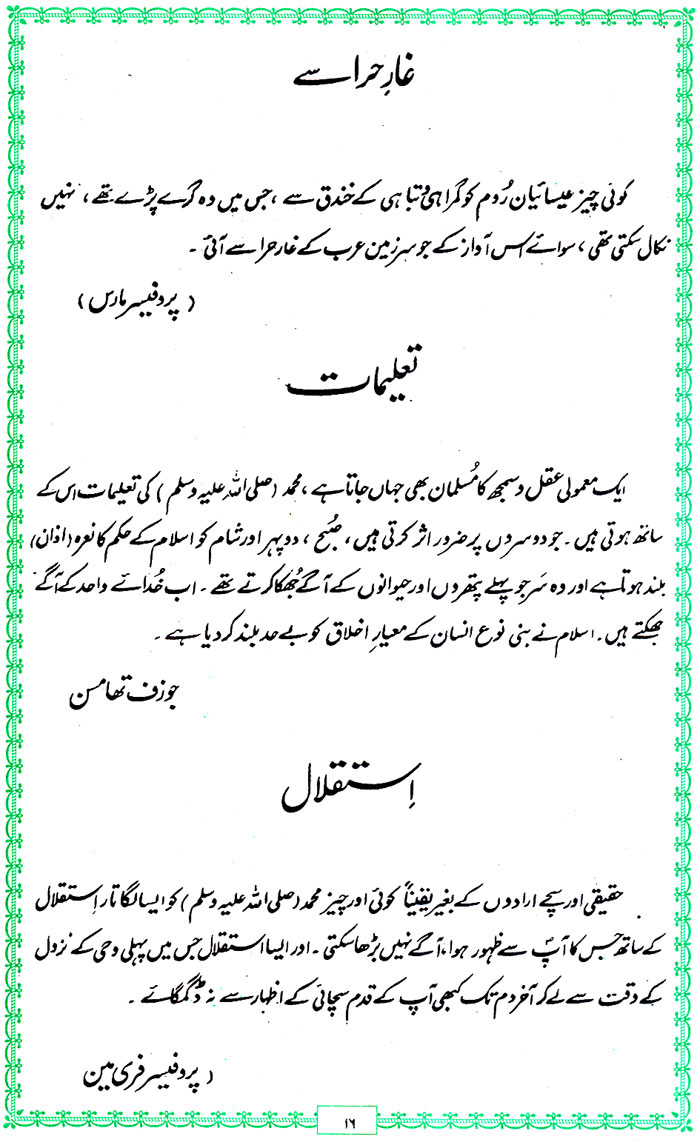 غارِ حرا سے
کوئی چیز عیسائیان رُوم کو گمراہی و تباہی کے خندق سے ، جس میں وہ گرے پڑے تھے ، نہیں
نکال سکتی تھی ، سوائے اس آواز کے جو سرزمین عرب کے غار حرا سے آئی ۔
( پروفیسر مارس )
تعلیمات
ایک معمولی عقل و سمجھ کا مُسلمان بھی جہاں جاتا ہے ، محمد (صلی اللہ علیہ وسلم ) کی تعلیمات اس کے
ساتھ ہوتی ہیں ۔ جو دوسروں پر ضرور اثر کرتی ہیں ، صُبح ، دوپہر اور شام کو اسلام کے حکم کا نعرہ (اذان)
بلند ہوتا ہے اور وہ سَر جو پہلے پتھروں اور حیوانوں کے آگے جُھکا کرتے تھے ۔ اب خُدائے واحد کے آگے
جھکتے ہیں ۔ اسلام نے بنی نوع انسان کے معیارِ اخلاق کو بے حد بلند کر دیا ہے ۔
جوزف تھامسن
اِستقلال
حقیقی اور سچے ارادوں کے بغیر یقیناً کوئی اور چیز محمد (صلی اللہ علیہ وسلم ) کو ایسا لگاتار اِستقلال
کے ساتھ جس کا آپؐ سے ظہور ہوا ، آگے نہیں بڑھا سکتی ۔ اور ایسا استقلال جس میں پہلی وحی کے نزول
کے وقت سے لے کر آخر دم تک کبھی آپ کے قدم سچائی کے اظہار سے نہ ڈگمگائے ۔
( پروفیسر فری مین
۱۶